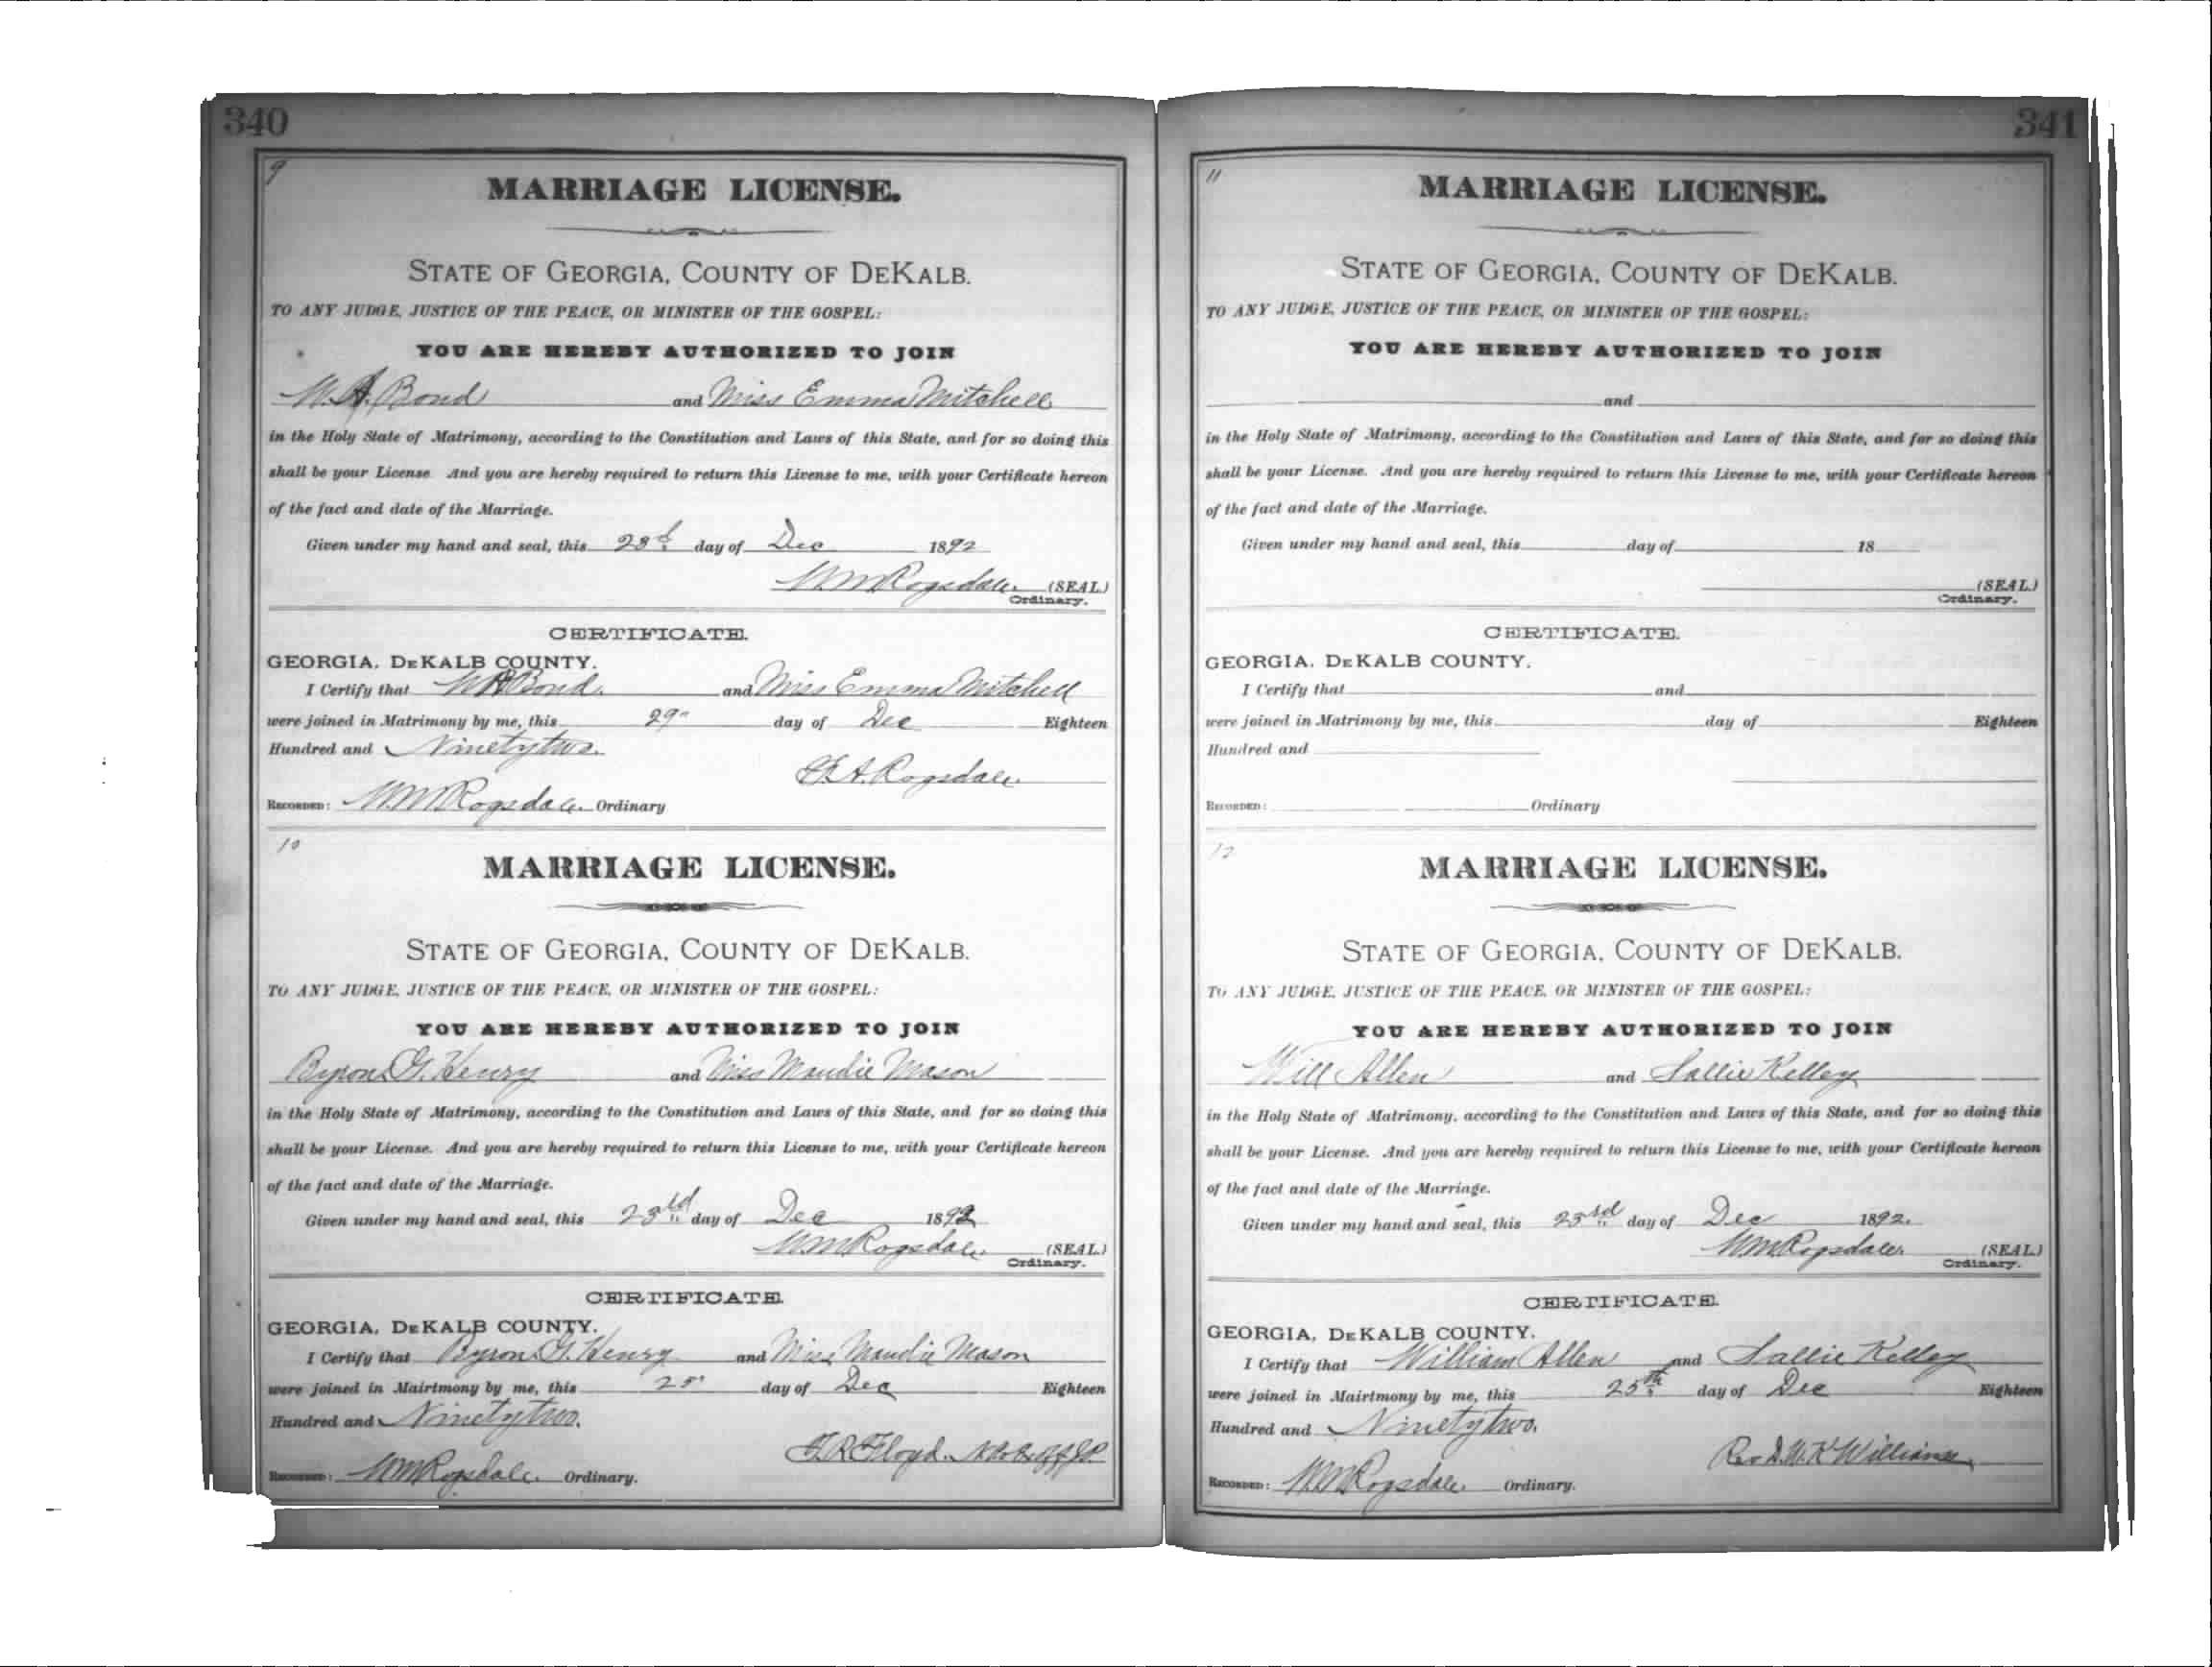 340
9
MARRIAGE LICENSE.
STATE OF GEORGIA, COUNTY OF DEKALB.
TO ANY JUDGE, JUSTICE OF THE PEACE, OR MINISTER OF THE GOSPEL:
YOU ARE HEREBY AUTHORIZED TO JOIN
Bond and Miss Emma Mitchell
in the Holy State of Matrimony, according to the Constitution and Laws of this State, and for so doing this
shall be your License. And you are hereby required to return this License to me, with your Certificate hereon
of the fact and date of the Marriage.
Given under my hand and seal, this day of Dec 1892
WM Ragsdale. (SEAL)
Ordinary.
CERTIFICATE.
GEORGIA, DEKALB COUNTY.
I Certify that Bond. and Miss Emma Mitchell
were joined in Matrimony by me, this 29" day of Dec Eighteen
Hundred and Ninetytwo.
A. Ragsdale.
RECORDED: WM Ragsdale. Ordinary
10
MARRIAGE LICENSE.
STATE OF GEORGIA, COUNTY OF DEKALB.
TO ANY JUDGE, JUSTICE OF THE PEACE, OR MINISTER OF THE GOSPEL:
YOU ARE HEREBY AUTHORIZED TO JOIN
Byron G. Henry and Miss Maudie Mason
in the Holy State of Matrimony, according to the Constitution and Laws of this State, and for so doing this
shall be your License. And you are hereby required to return this License to me, with your Certificate hereon
of the fact and date of the Marriage.
Given under my hand and seal, this 23rd day of Dec 1892
WM Ragsdale. (SEAL)
Ordinary.
CERTIFICATE.
GEORGIA, DEKALB COUNTY.
I Certify that Byron G. Henry and Miss Maudie Mason
were joined in Mairtmony by me, this 25" day of Dec Eighteen
Hundred and Ninetytwo.
Floyd.
RECORDED: WM Ragsdale. Ordinary.
341
11
MARRIAGE LICENSE.
STATE OF GEORGIA, COUNTY OF DEKALB.
TO ANY JUDGE, JUSTICE OF THE PEACE, OR MINISTER OF THE GOSPEL:
YOU ARE HEREBY AUTHORIZED TO JOIN
and
in the Holy State of Matrimony, according to the Constitution and Laws of this State, and for so doing this
shall be your License. And you are hereby required to return this License to me, with your Certificate hereon
of the fact and date of the Marriage.
Given under my hand and seal, this day of 18
(SEAL)
Ordinary.
CERTIFICATE.
GEORGIA, DEKALB COUNTY.
I Certify that and
were joined in Matrimony by me, this day of Eighteen
Hundred and
RECORDED: Ordinary
12
MARRIAGE LICENSE.
STATE OF GEORGIA, COUNTY OF DEKALB.
TO ANY JUDGE, JUSTICE OF THE PEACE, OR MINISTER OF THE GOSPEL:
YOU ARE HEREBY AUTHORIZED TO JOIN
Will Allen and Sallie Kelley
in the Holy State of Matrimony, according to the Constitution and Laws of this State, and for so doing this
shall be your License. And you are hereby required to return this License to me, with your Certificate hereon
of the fact and date of the Marriage.
Given under my hand and seal, this 23rd day of Dec 1892.
WM Ragsdale. (SEAL)
Ordinary.
CERTIFICATE.
GEORGIA, DEKALB COUNTY.
I Certify that William Allen and Sallie Kelley
were joined in Mairtmony by me, this 25th day of Dec Eighteen
Hundred and Ninetytwo.
Rev Williams
RECORDED: WM Ragsdale. Ordinary.